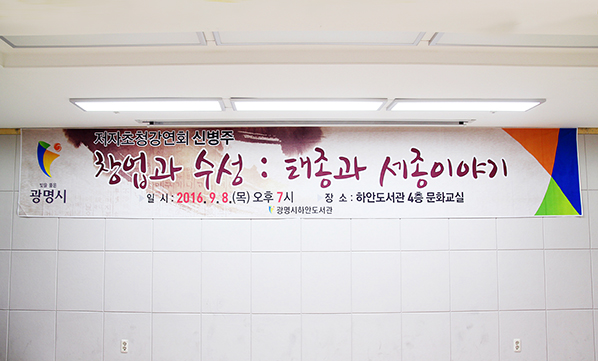 저자초청강연회 신병주
창업과 수성 : 태종과 세종이야기
빛을 품은
광명시
일 시 : 2016. 9. 8.(목) 오후 7시 장 소 : 하안도서관 4층 문화교실
광명시하안도서관